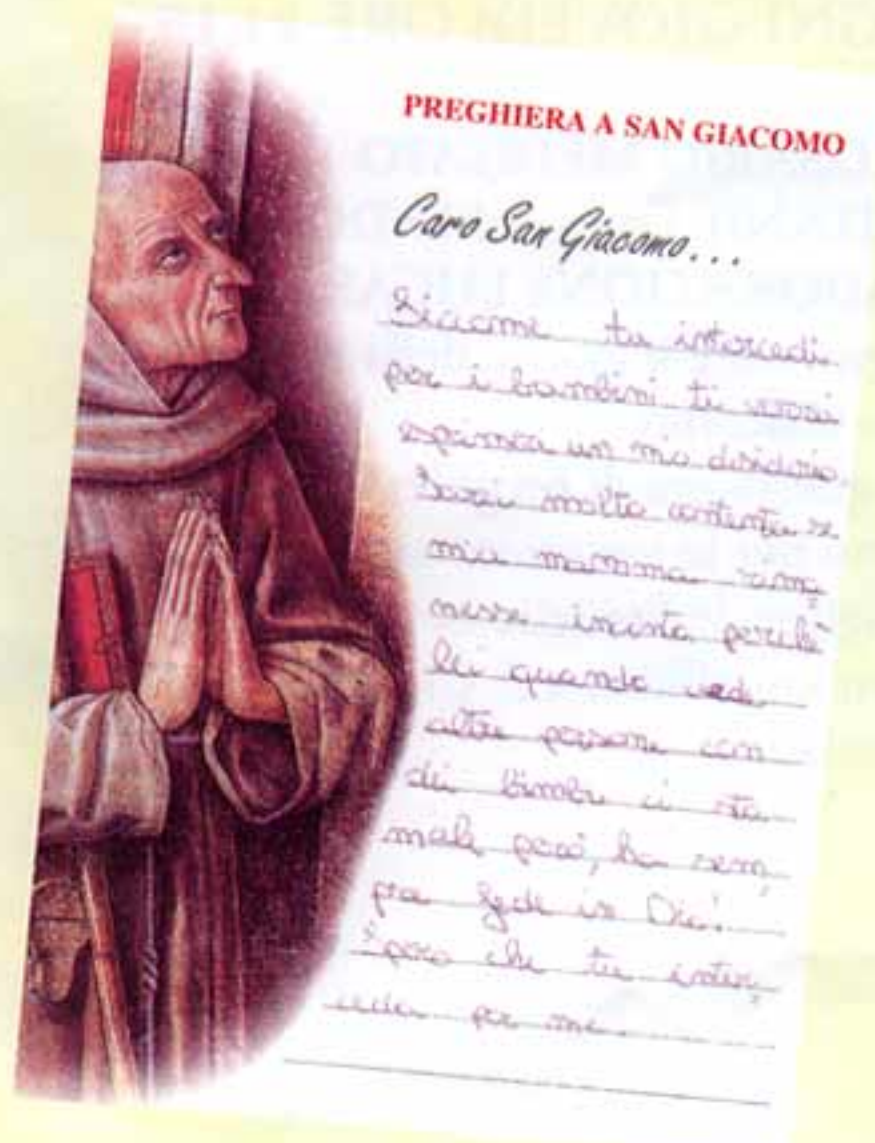 PREGHIERA A SAN GIACOMO
Caro San Giacomo...
Siccome tu intercedi
per i bambini ti vorrei
esprimere un mio desiderio.
Sarei molto contenta se
mia mamma rima
nesse incinta, perchè
lei quando vede
altre persone con
dei bimbi ci sta
male, però, ha sem
pre fede in Dio!
Spero che tu inter
ceda per me.